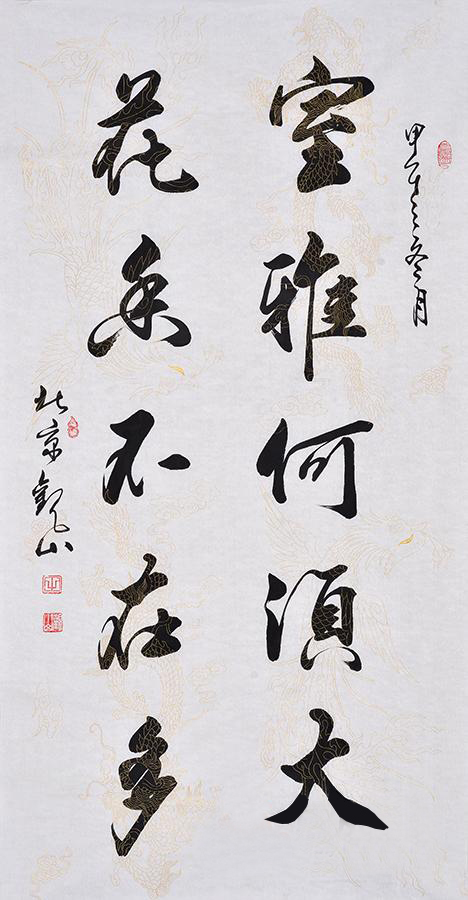 甲午之冬月
室雅何須大
花香不在多
北京